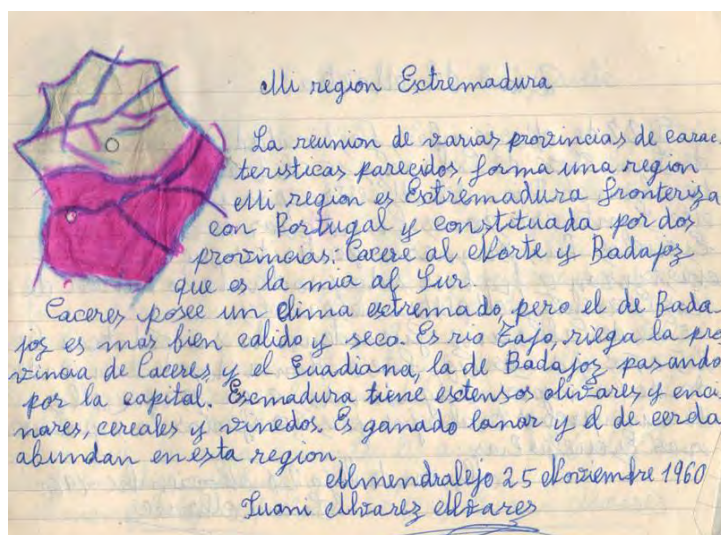 Mi region Extremadura
La reunion de varias provincias de carac-
teristicas parecidos, forma una region
Mi region es Extremadura fronteriza
con Portugal y constituada por dos
provincias: Cacere al Norte y Badajoz
que es la mia al Sur.
Caceres posee un clima extremado, pero el de Bada-
joz es mas bien calido y seco. Es rio Tajo, riega la pro
vincia de Caceres y el Guadiana, la de Badajoz pasando
por la capital. Esemadura tiene estensos olivares y enci
nares, cereales y vinedos. Es ganado lanar y el de cerda
abundan en esta region
Almendralejo 25 Noviembre 1960
Juani Alvarez Alvarez